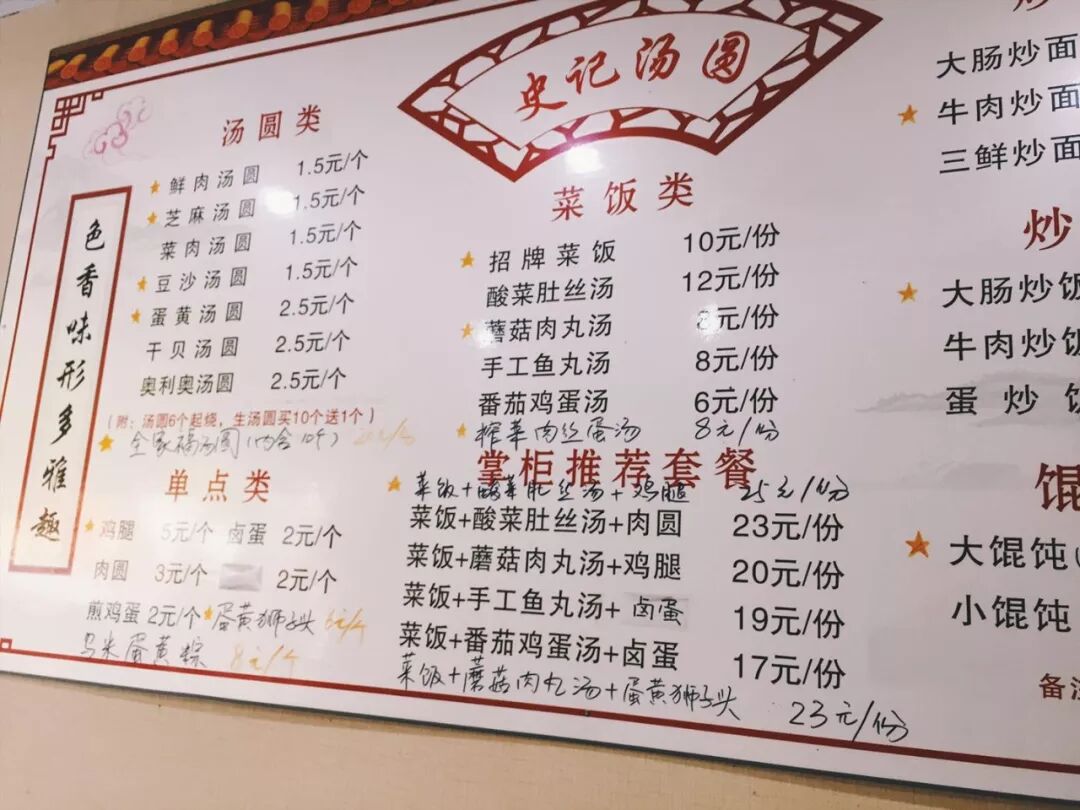 史记汤圆
色香味形多雅趣
汤圆类
鲜肉汤圆 1.5元/个
芝麻汤圆 1.5元/个
菜肉汤圆 1.5元/个
豆沙汤圆 1.5元/个
蛋黄汤圆 2.5元/个
干贝汤圆 2.5元/个
奥利奥汤圆 2.5元/个
(附:汤圆6个起烧,生汤圆买10个送1个)
全家福汤圆(内含
单点类
鸡腿 5元/个 卤蛋 2元/个
肉圆 3元/个 2元/个
煎鸡蛋 2元/个 蛋黄狮子头 6元/个
乌米蛋黄粽 8元/个
菜饭类
招牌菜饭 10元/份
酸菜肚丝汤 12元/份
蘑菇肉丸汤 8元/份
手工鱼丸汤 8元/份
番茄鸡蛋汤 6元/份
榨菜肉丝蛋汤 8元/份
掌柜推荐套餐
菜饭+酸菜肚丝汤+鸡腿 25元/份
菜饭+酸菜肚丝汤+肉圆 23元/份
菜饭+蘑菇肉丸汤+鸡腿 20元/份
菜饭+手工鱼丸汤+卤蛋 19元/份
菜饭+番茄鸡蛋汤+卤蛋 17元/份
菜饭+蘑菇肉丸汤+蛋黄狮子头 23元/份
大肠炒面
牛肉炒面
三鲜炒面
炒
大肠炒饭
牛肉炒饭
蛋炒饭
馄
大馄饨
小馄饨
备注